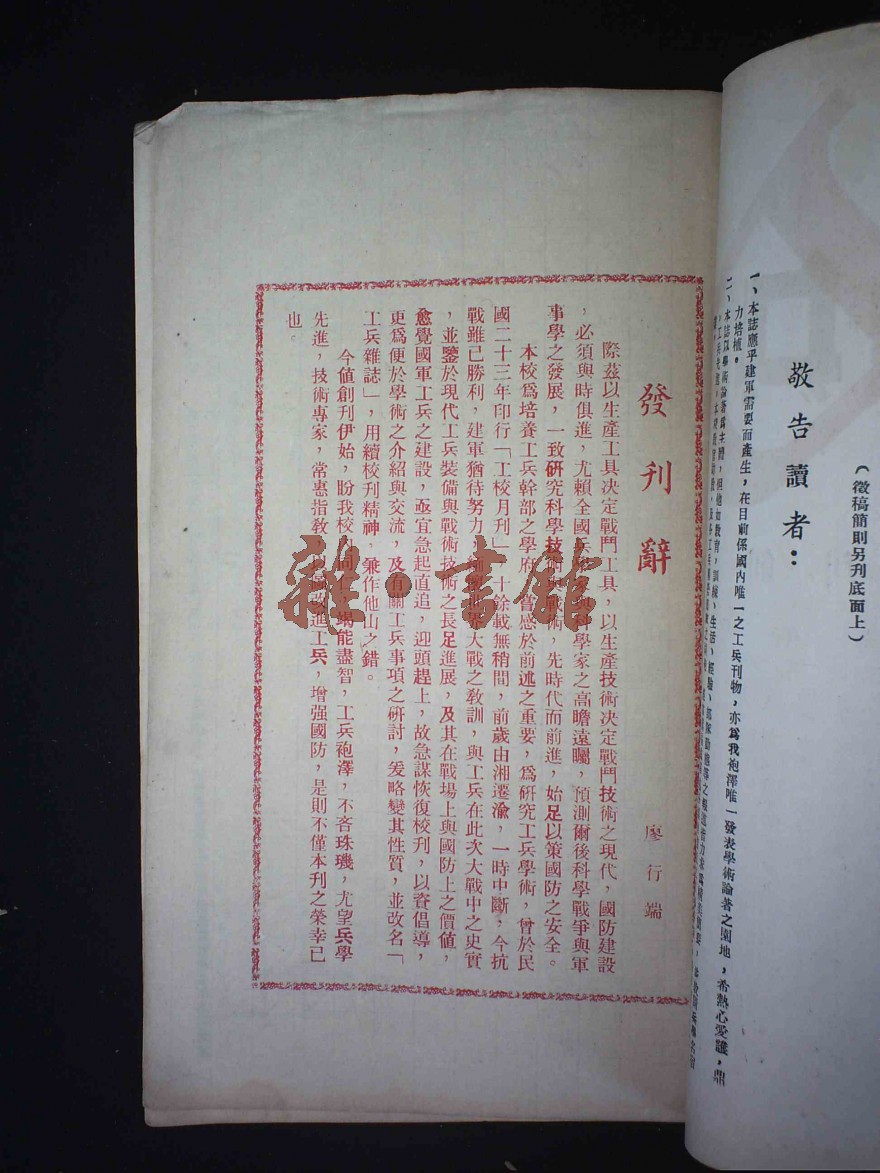 敬告讀者：
（徵稿簡則另刋底面上）
一、本誌應乎建軍需要而產生，在目前係國內唯一之工兵刊物，亦爲我袍澤唯一發表學術論著之園地，希熱心愛護，鼎
力培植。
二、本誌以學術論著爲主體，
發刊辭
廖行端
際茲以生產工具決定戰鬥工具，以生產技術決定戰鬥技術之現代，國防建設
，必須與時俱進，尤賴全國兵學家與科學家之高瞻遠矚，預測爾後科學戰爭與軍
事學之發展，一致硏究科學技術與戰術，先時代而前進，始足以策國防之安全。
本校爲培養工兵幹部之學府，曾感於前述之重要，爲硏究工兵學術，曾於民
國二十三年印行「工校月刊」十餘載無稍間，前歲由湘遷渝，一時中斷，今抗
戰雖已勝利，建軍猶待努力，大戰之敎訓，與工兵在此次大戰中之史實
，並鑒於現代工兵裝備與戰術技術之長足進展，及其在戰場上與國防上之價値，
愈覺國軍工兵之建設，亟宜急起直追，迎頭趕上，故急謀恢復校刋，以資倡導，
更爲便於學術之介紹與交流，及有關工兵事項之硏討，爰略變其性質，並改名「
工兵雜誌」，用續校刋精神，兼作他山之錯。
今值創刋伊始，盼我校竭能盡智，工兵袍澤，不吝珠璣，尤望兵學
先進，技術專家，常惠指敎，改進工兵，增强國防，是則不僅本刋之榮幸已
也。
雜·書館